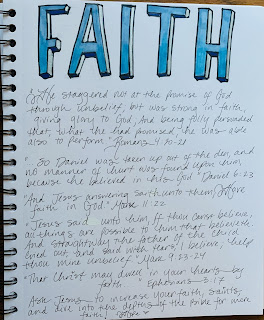 FAITH
"He staggered not at the promise of God
through unbelief, but was strong in faith,
giving glory to God; And being fully persuaded
that, what he had promised, he was able
also to perform." Romans 4:20-21
"... So Daniel was taken up out of the den, and
no manner of hurt was found upon him,
because he believed in his God" Daniel 6:23
"And Jesus answering saith unto them, Have
faith in God" Mark 11:22
"Jesus said unto him, If thou canst believe,
all things are possible to him that believeth.
And straightway the father of the child
cried out, and said with tears, I believe; help
thou mine unbelief." Mark 9:23-24
"That Christ may dwell in your hearts by
faith" Ephesians 3:17
Ask Jesus to increase your faith, saints,
and dive into the depths of the Bible for more
faith